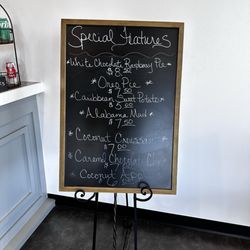 Special Features
*White Chocolate Raspberry Pie*
$8.50
Oreo Pie
$7.50
*Caribbean Sweet Potato*
$5.00
*Alabama Mud*
$7.50
*Coconut Croissant*
$7.00
*Caramel Chocolate
*Coconut